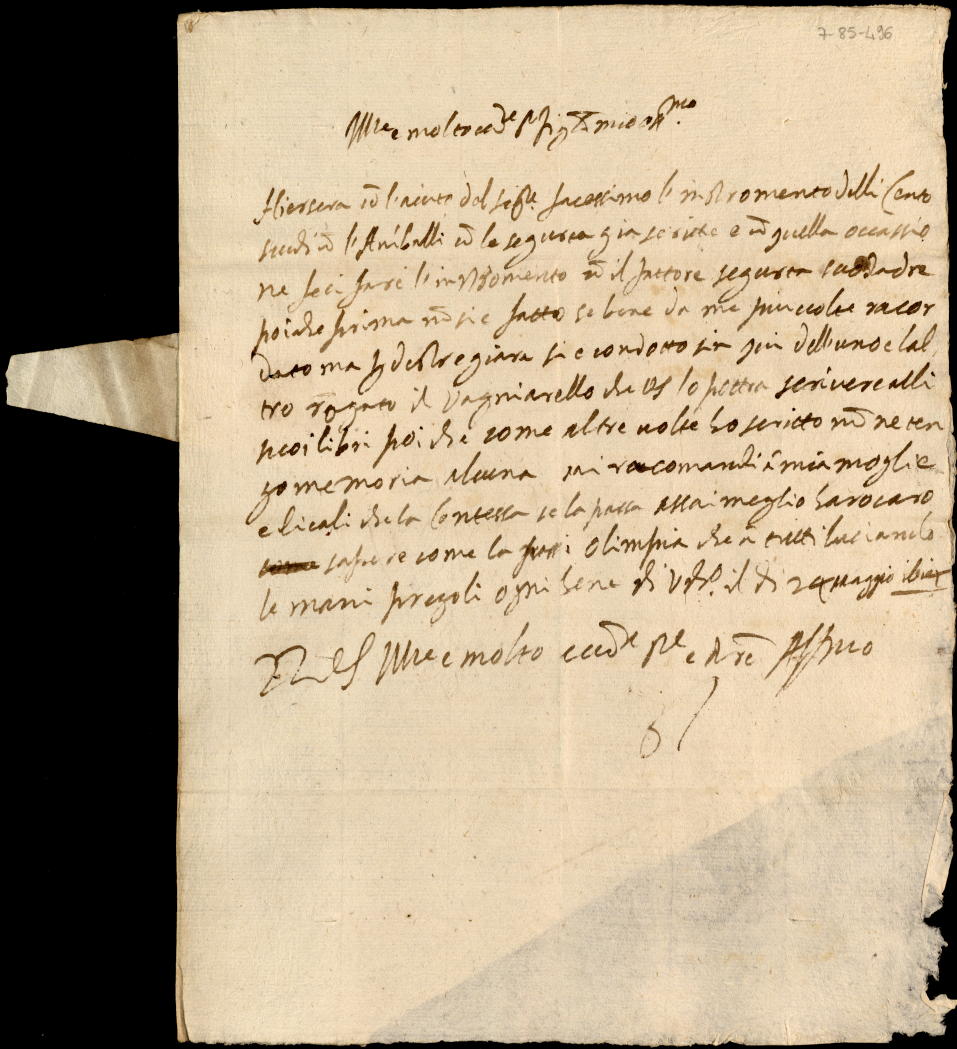 7-85-496
Ill.re e molto ecc.te s.r mio
Hiersera cō l'aiuto del sig.r facessimo l'instromento delli Cento
scudi cō l'Aniballi cō la segurta gia scritte e cō quella occassio
ne feci fare l'instromento cō il fattore segurta suo Padre
poiche prima nō si e fatto se bene da me piu volte racor
dato ma si e condotto sin qui dell'uno e lal
tro rogato il Vagniarello che VS lo potra scrivere alli
suoi libri poi che come altre volte ho scritto nō ne ten
go memoria alcuna mi racomandi à mia moglie
e dicali che la Contessa se la passa assai meglio haro caro
sapere come la passi Olimpia che à tutti baciando
le mani pregoli ogni bene di il di maggio
Di VS Ill.re e molto ecc.te